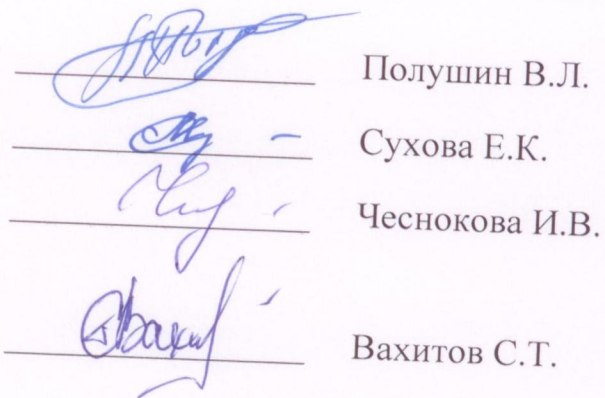 Полушин В.Л.
Сухова Е.К.
Чеснокова И.В.
Вахитов С.Т.